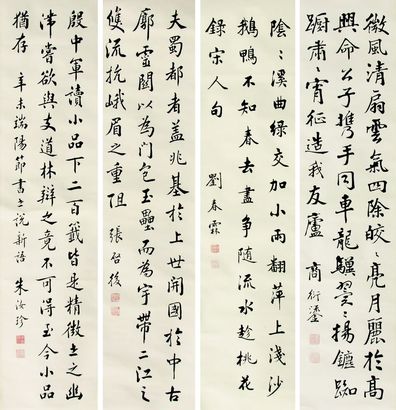 微風清扇雲氣四除皎〻亮月麗於高
興命公子携手同車龍驥翼〻揚鑣踟
躕肅〻宵征造我友廬 商衍鎏
陰〻溪曲綠交加小雨翻萍上淺沙
鵝鴨不知春去盡爭随流水趁桃花
録宋人句 劉春霖
夫蜀都者盖兆基於上世開國於中古
廓靈關以為門包玉壘而為宇帶二江之
雙流抗峨眉之重阻 張啓後
殷中軍讀小品下二百籤皆是精微世之幽
滯嘗欲與支道林辯之竟不可得至今小品
猶存 辛未端陽節書世說新語 朱汝珍